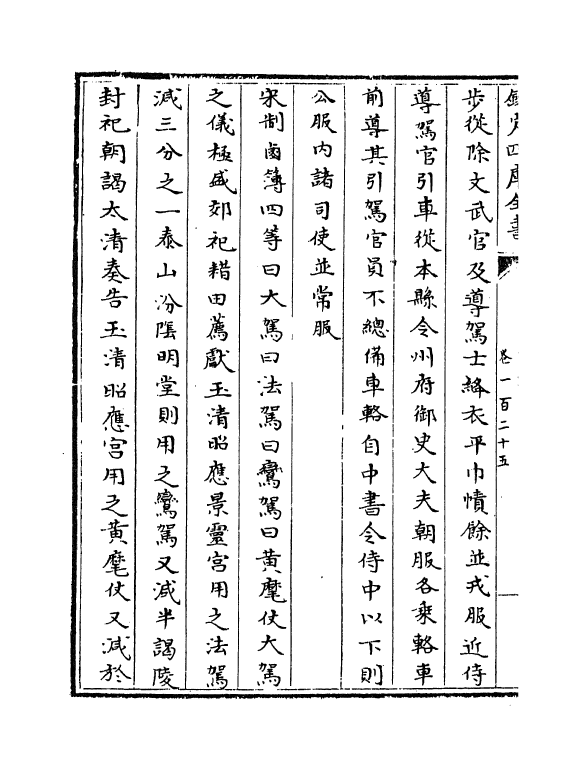 欽定四庫全書
卷一百二十五
步從除文武官及導駕士絳衣平巾幘餘並戎服近侍
導駕官引車從本縣令州府御史大夫朝服各乘輅車
前導其引駕官員不總備車輅自中書令侍中以下則
公服内諸司使並常服
宋制鹵簿四等曰大駕曰法駕曰鸞駕曰黄麾仗大駕
之儀極盛郊祀耤田薦獻玉清昭應景靈宫用之法駕
減三分之一泰山汾隂明堂則用之鸞駕又減半謁陵
封祀朝謁太清奏告玉清昭應宫用之黄麾仗又減於